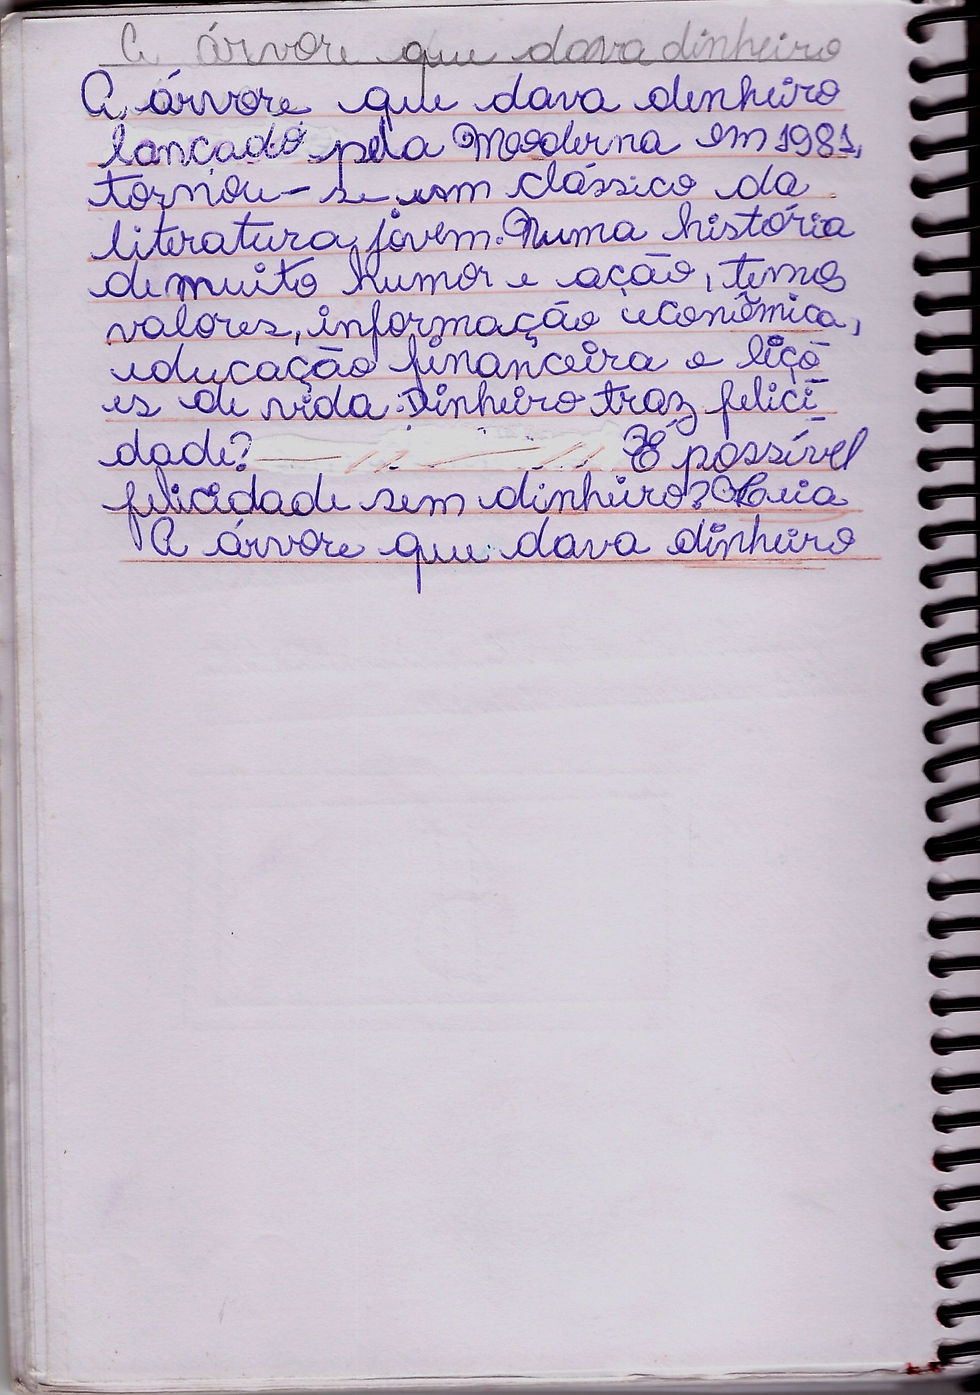 A árvore que dava dinheiro
A árvore que dava denheiro
lançado pela Moderna em 1981,
tornou-se um clássico da
literatura jovem. Numa história
de muito humor e ação, temos
valores, informação econômica,
educação financeira e liçõ
es de vida. Dinheiro traz felici
dade? É possível
felicidade sem dinheiro? Leia
A árvore que dava dinheiro